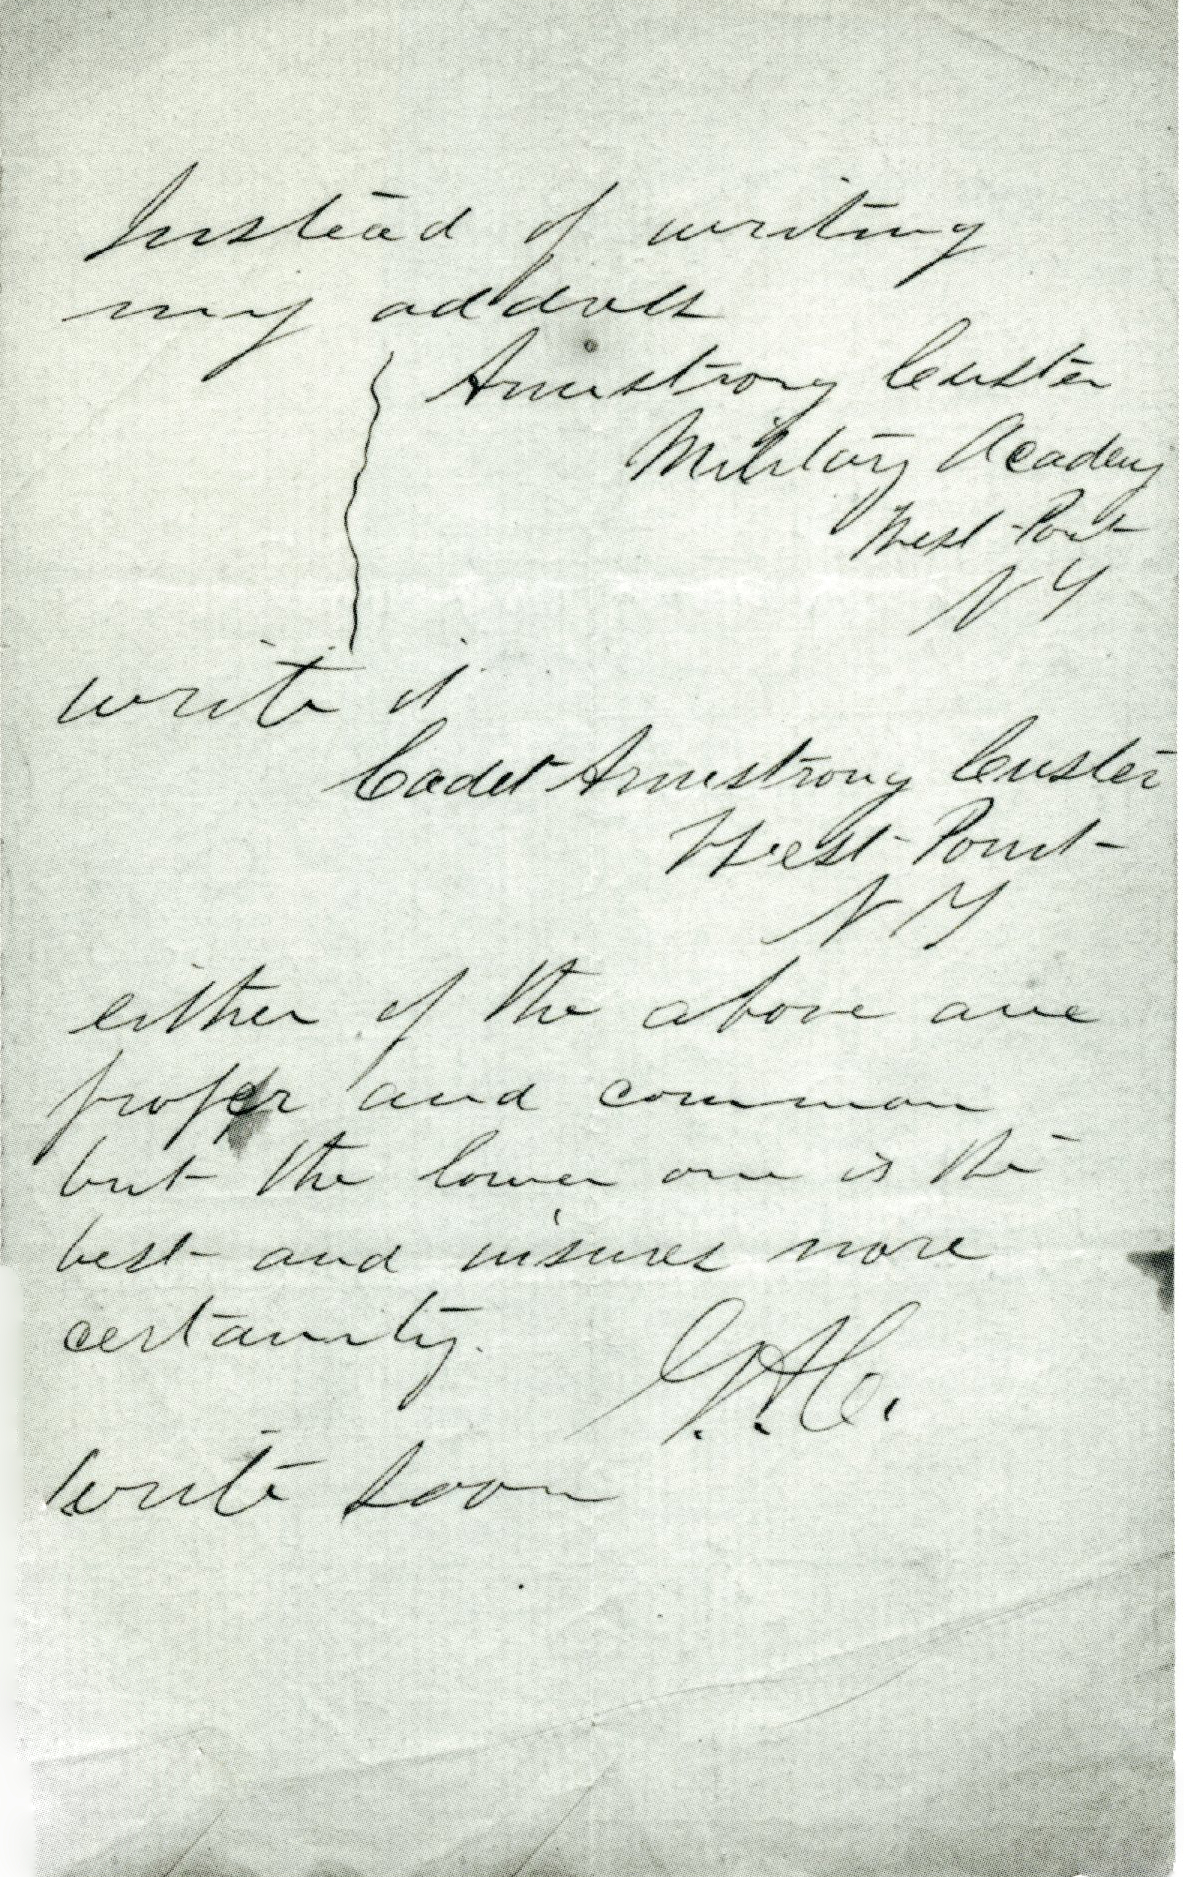 Instead of writing
my address
Armstrong Custer
Military Academy
West-Point
N Y
write it
Cadet Armstrong Custer
West-Point
N Y
either of the above are
proper and common
but the lower one is the
best and insures more
certainity.
G.A.C.
Write soon